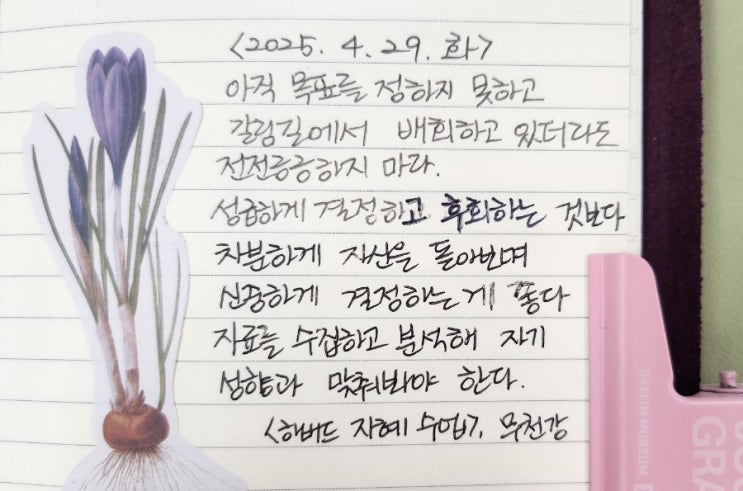 <2025. 4. 29. 화>
아직 목표를 정하지 못하고
갈림길에서 배회하고 있더라도
전전긍긍하지 마라.
성급하게 결정하고 후회하는 것보다
차분하게 자신을 돌아보며
신중하게 결정하는게 좋다
자료를 수집하고 분석해 자기
성향과 맞춰봐야 한다.
<하버드 지혜 수업>, 무천강
DAELIM MUSEUM
GRA